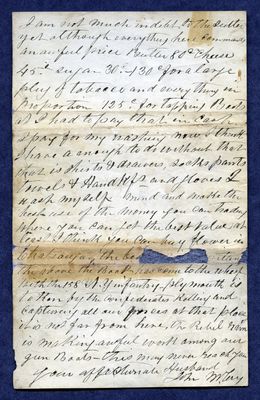 I am not much in debt to the Sutler
yet although everything here commands
an awful price Butter 80c Cheese
45c Sugar 30c 130c for a large
plug of tobacco and everything in
Proportion 125c for tapping Boots
I had to pay that in cash
I pay for my washing now I think
I have a enough to do without that
that is shirts & drawers, socks pants
towels & Handkfs and gloves I
wash myself mind and make the
best use of the money you can trade
where you can get the best value at
I think you can buy flower in
the above the Boat has come to the wharf
with the 158 N.Y infantry plymouth is
taken by the confederates killing and
capturing all our forces at that place
it is not far from here, the Rebel Ram
is making awful work among our
gun Boats - this may never reach you
your affectionate Husband
John